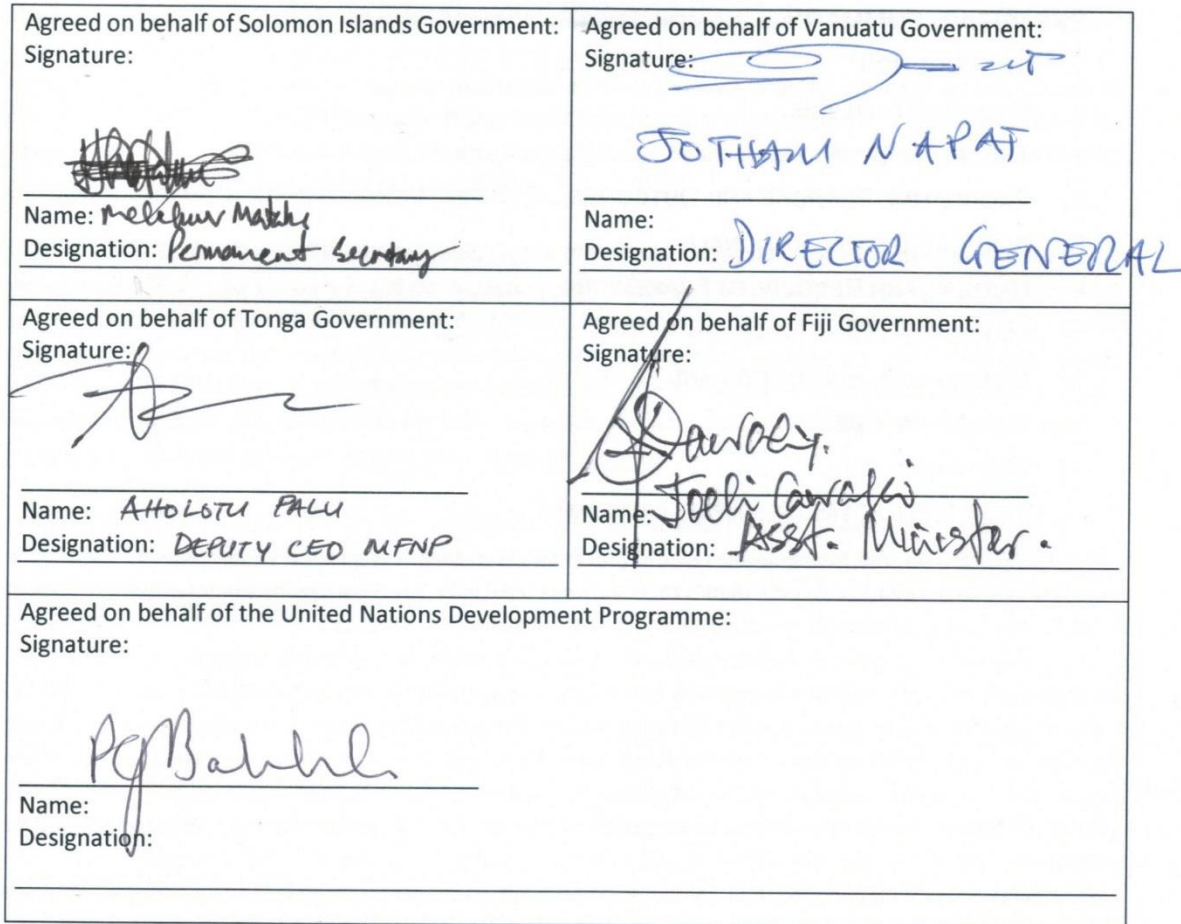 Agreed on behalf of Solomon Islands Government:
Signature:
Name: Melchior Mataki
Designation: Permanent Secretary
Agreed on behalf of Vanuatu Government:
Signature:
JOTHAM NAPAT
Name:
Designation: DIRECTOR GENERAL
Agreed on behalf of Tonga Government:
Signature:
Name: AHOLOTU PALU
Designation: DEPUTY CEO MFNP
Agreed on behalf of Fiji Government:
Signature:
Name: Joeli Cawaki
Designation: Asst. Minister.
Agreed on behalf of the United Nations Development Programme:
Signature:
Name:
Designation: